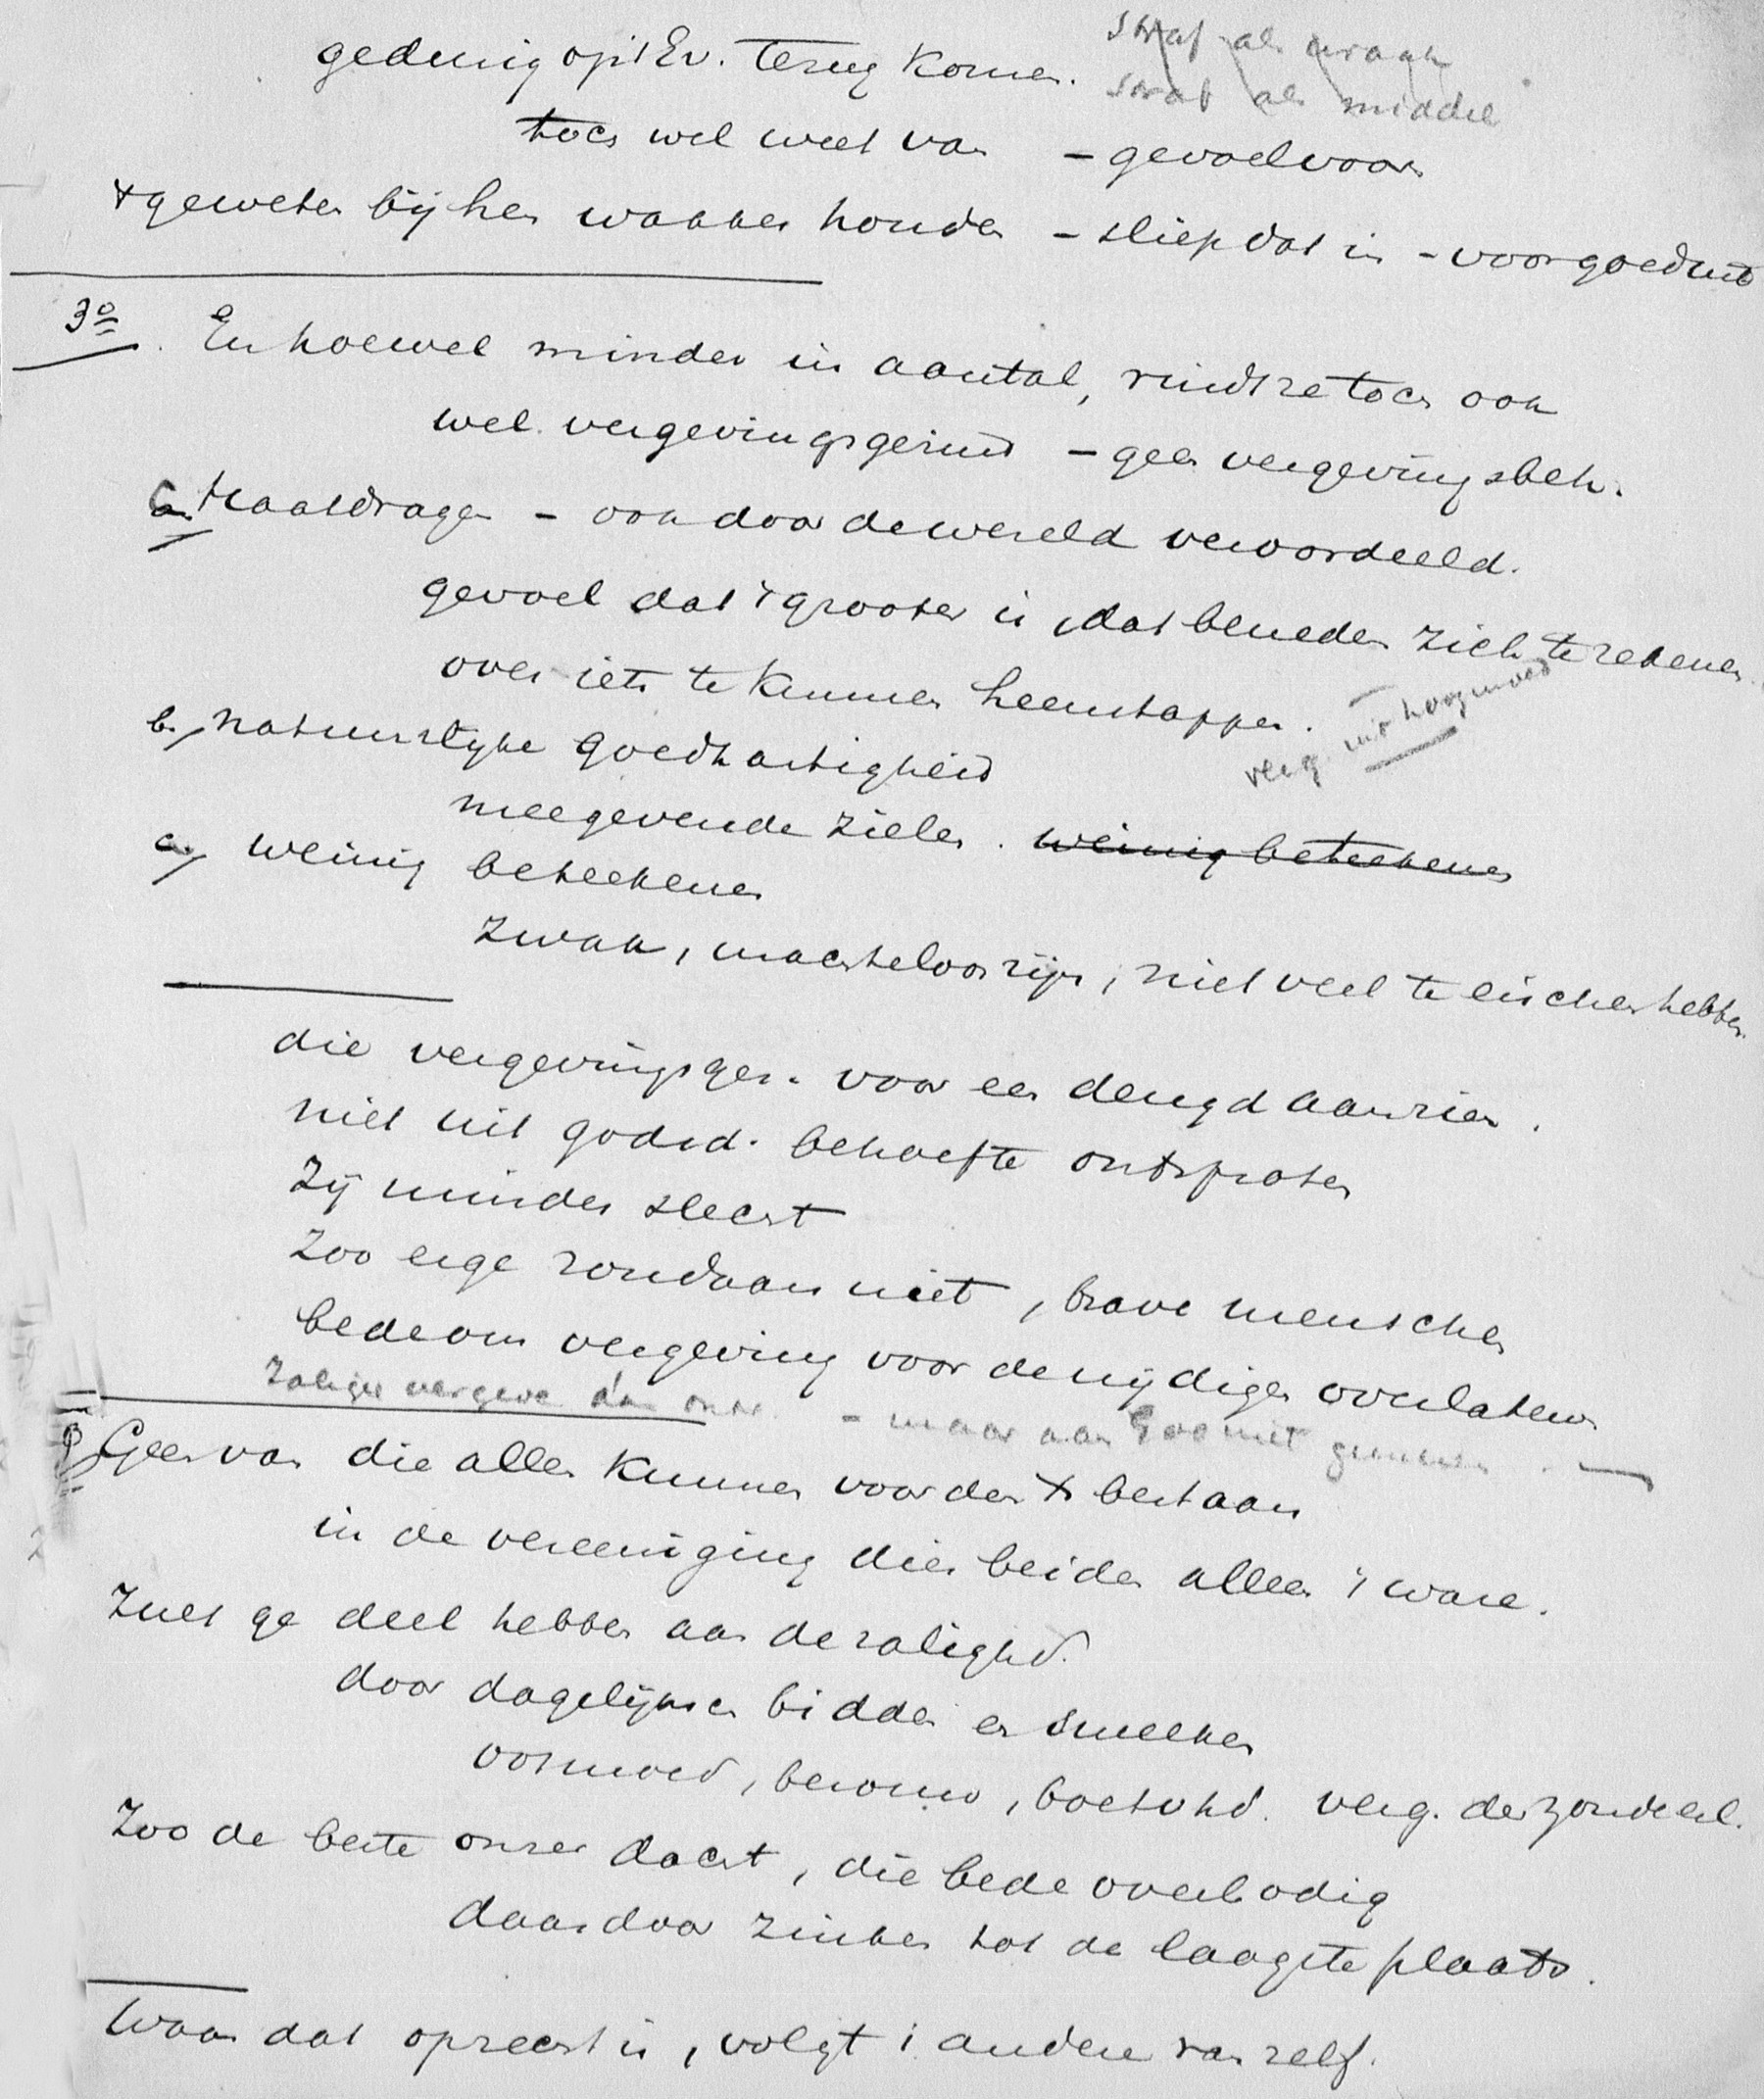 gedurig op 't Ev. terug komen.
straf als wraak
straf als middel
toch wel weet van – gevoel voor
& geweten bij hen wakker houden – sliep dat in – voorgoed uit
3º. En hoewel minder in aantal, vindt ze toch ook
wel vergevingsgezind – geen vergevingsbeh.
a, Haatdragen – ook door de wereld veroordeeld.
gevoel dat 't grooter is, dat beneden zich te rekenen
over iets te kunnen heenstappen.
verg. uit hoogmoed
b, natuurlijke goedhartigheid
meegevende zielen. weinig beteekenen
c, weinig beteekenen
zwak, machteloos zijn, niet veel te eischen hebben
die vergevingsgez. voor een deugd aanzien.
niet uit godsd. behoefte ontsproten
Zij minder slecht
Zoo erge zondaars niet, brave menschen
bede om vergeving voor de nijdigen overlaten
Zaliger vergeve dan ontv. – maar aan God niet gunnen. –
Geen van die allen kunnen voor den X bestaan
in de vereeniging dier beiden alleen 't ware.
Zult ge deel hebben aan de zalighd.
door dagelijksch bidden en smeeken
ootmoed, berouw, boetvhd. verg. der zonden erl.
Zoo de beste onzer dacht, die bede overbodig
daardoor zinken tot de laagste plaats.
Waar dat oprecht is, volgt 't andere van zelf.